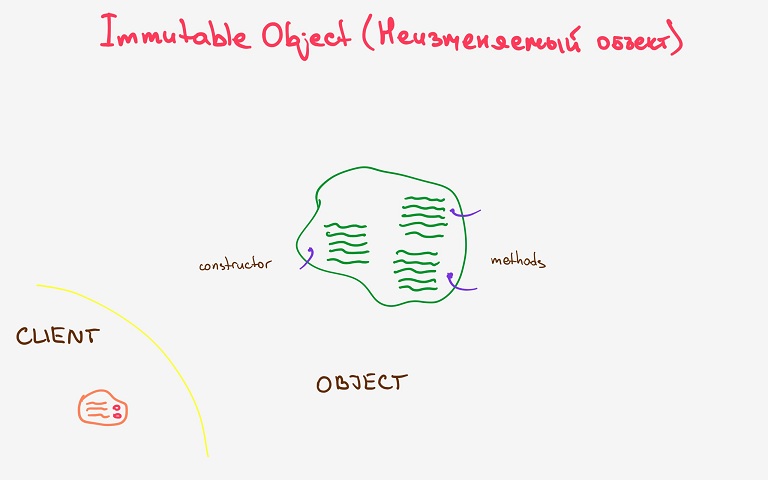 Immutable Object (Неизменяемый объект)
constructor
methods
CLIENT
OBJECT